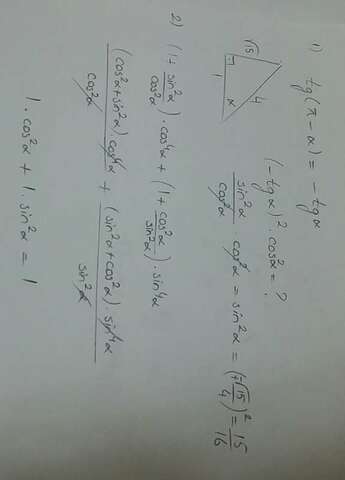 1) tg(π-α) = -tgα
√15
1
α
4
(-tgα)² · cos²α = ?
sin²α/cos²α · cos²α = sin²α = (√15/4)² = 15/16
2) (1 + sin²α/cos²α) · cos⁴α + (1 + cos²α/sin²α) · sin⁴α
(cos²α + sin²α) · cos⁴α/cos²α + (sin²α + cos²α) · sin⁴α/sin²α
1 · cos²α + 1 · sin²α = 1